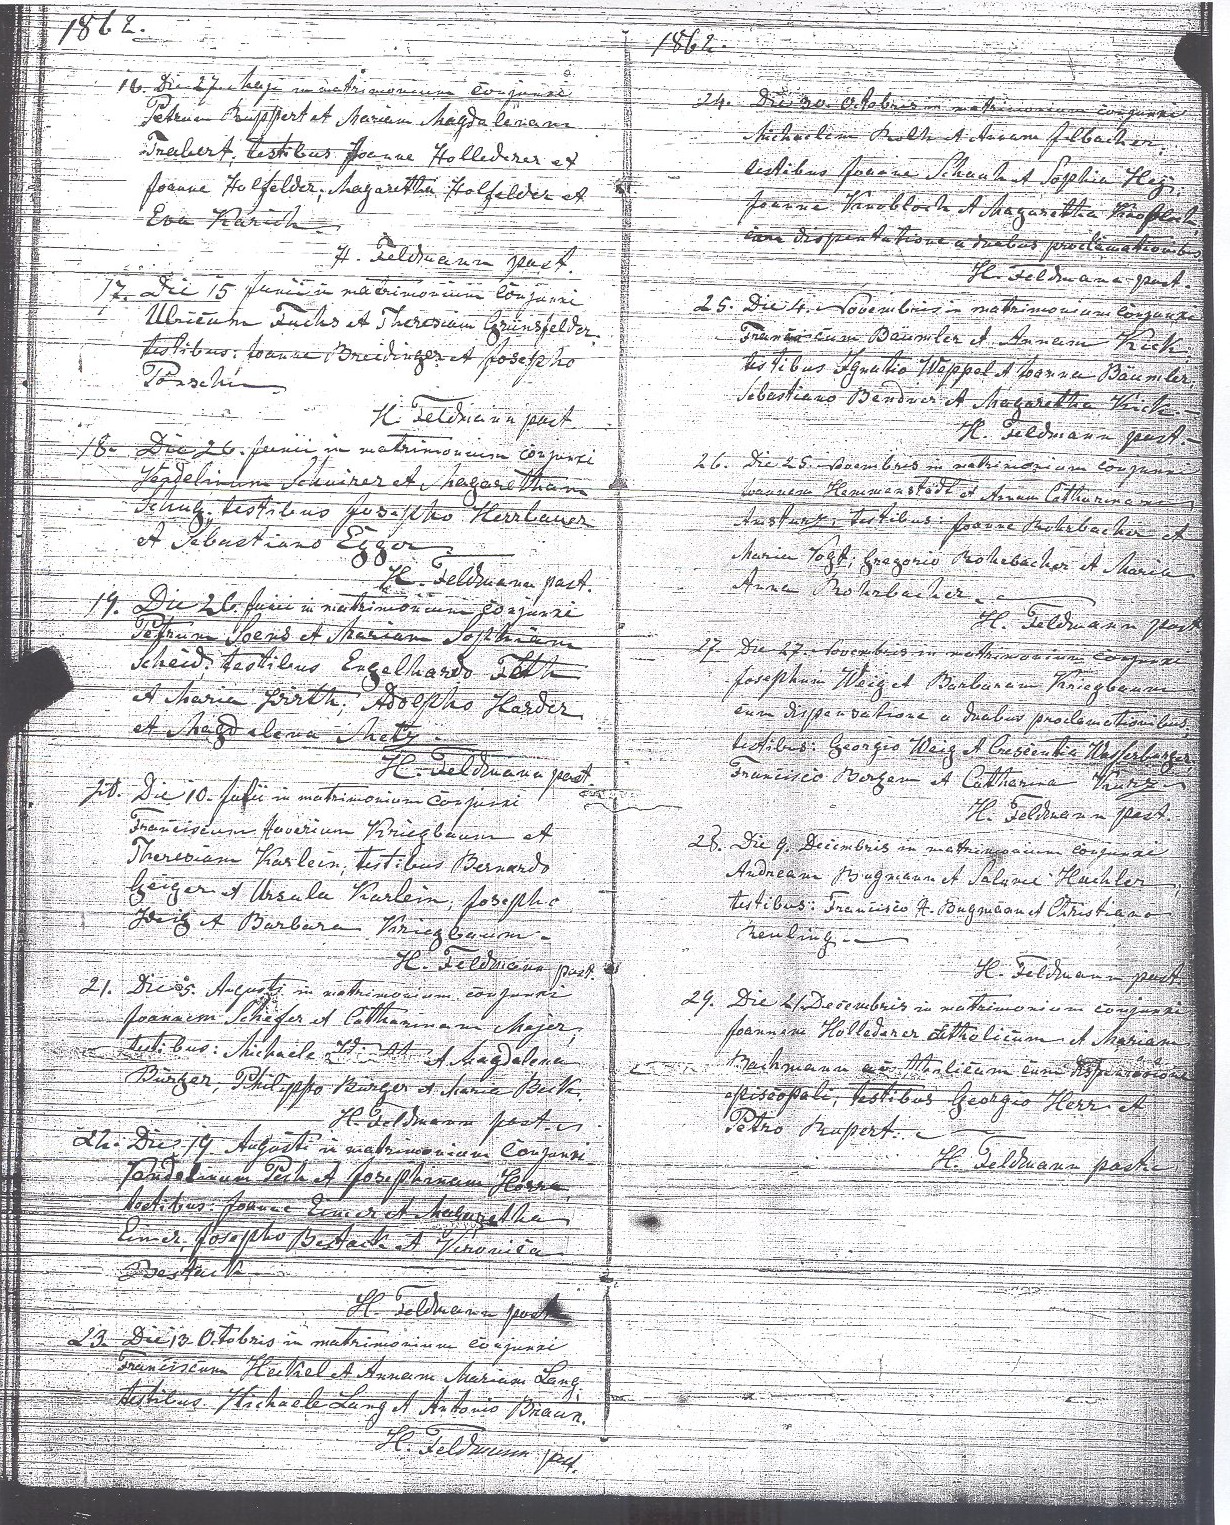 1862.
16. Die 27. Maji in matrimonium conjunxi
Petrum Ruppert et Mariam Magdalenam
Trabert, testibus Joanne Hollederer et
Joanne Holfelder, Magaretha Holfelder et
Eva Karich
H. Feldmann past.
17. Die 15 Junii in matrimonium conjunxi
Ulricum Fuchs et Theresiam Grünsfelder
testibus: Joanne Breidinger et Josepho
H. Feldmann past.
18. Die 26. Junii in matrimonium conjunxi
Wendelinum Schuirer et Magaretham
Schug; testibus Josepho Herrbauer
et Sebastiano Egger
H. Feldmann past.
19. Die 26. Junii in matrimonium conjunxi
Petrum Soens et Mariam Sophiam
Scheid; testibus Engelhardo Feth
et Maria Wirth; Adolpho Harder
et Magdalena Metz.
H. Feldmann past.
20. Die 10. Julii in matrimonium conjunxi
Franciscum Xaverium Kriegbaum et
Theresiam Karlein; testibus Bernardo
Geiger et Ursula Karlein, Josepho
Weig et Barbara Kriegbaum
H. Feldmann past.
21. Die 5. Augusti in matrimonium conjunxi
Joannem Schäfer et Catharinam Majer,
testibus: Michaele et Magdalena
Bürger, Philippo Bürger et Maria Beck.
H. Feldmann past.
22. Die 19. Augusti in matrimonium conjunxi
Vandelinum et Josephinam
testibus: Joanne Eimer et Magaretha
Eimer, Josepho Bestack et Veronica
Bestack
H. Feldmann past.
23. Die 13 Octobris in matrimonium conjunxi
Franciscum Heckel et Annam Mariam Lang;
testibus Michaele Lang et Antonio Braun.
H. Feldmann past.
1862.
24. Die 30. Octobris in matrimonium conjunxi
Michaelem Roth et Annam Filbacher;
testibus Joanne Schauh et Sophia Hey;
Joanne Knobloch et Magaretha Knobloch
cum dispentatione a duabus proclamationibus
H. Feldmann past.
25. Die 4. Novembris in matrimonium conjunxi
Franciscum Bäumler et Annam Kick
testibus Ignatio Weppel et Joanna Bäumler,
Sebastiano Bendner et Magaretha Kick.
H. Feldmann past.
26. Die 25. Novembris in matrimonium conjunxi
Joannem Hammenstädt et Annam Catharinam
testibus: Joanne Rohrbacher et
Maria Vogt; Gregorio Rohrbacher et Maria
Anna Rohrbacher
H. Feldmann past.
27. Die 27. Novembris in matrimonium conjunxi
Josephum Weig et Barbaram Kriegbaum
cum dispensatione a duabus proclamationibus,
testibus: Georgio Weig et Crescentia Wasserburger,
Francisco Bergen et Catharina Kurz
H. Feldmann past.
28. Die 9. Decembris in matrimonium conjunxi
Andream Bugmann et Salume Hachler
testibus: Francisco A. Bugmann et Christiano
Reuling.
H. Feldmann past.
29. Die 21. Decembris in matrimonium conjunxi
Joannem Hollederer catholicum et Mariam
Bachmann cum dispensatione
episcopali, testibus Georgio Herr et
Petro Rupert.
H. Feldmann past.